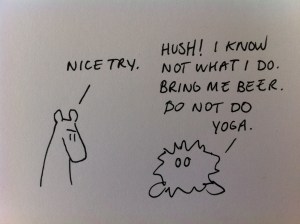 NICE TRY.
HUSH! I KNOW
NOT WHAT I DO.
BRING ME BEER.
DO NOT DO
YOGA.